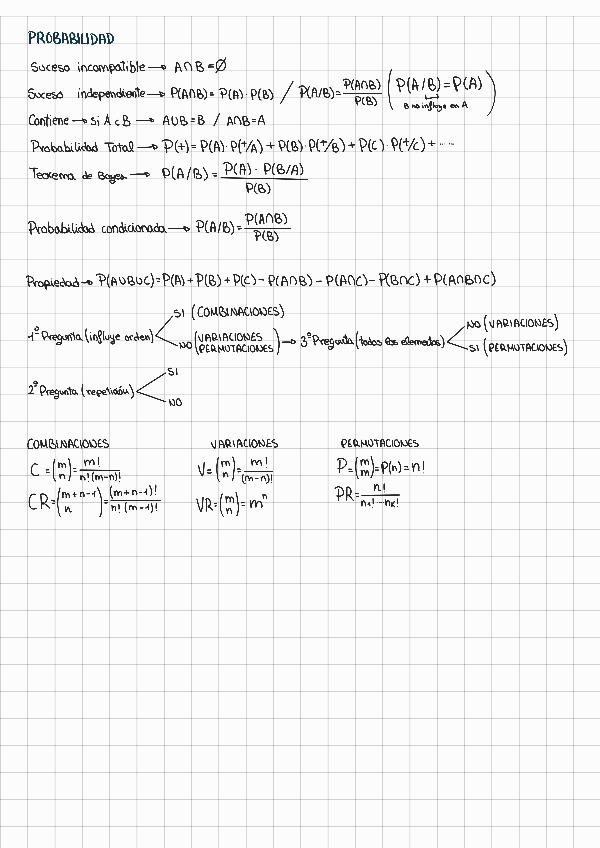 PROBABILIDAD
Suceso incompatible → A∩B=∅
Suceso independiente → P(A∩B)= P(A)·P(B) / P(A/B)= P(A∩B)/P(B) (P(A/B)=P(A))
B no influye en A
Contiene → si A⊂B → A∪B=B / A∩B=A
Probabilidad Total → P(+)= P(A)·P(+/A) + P(B)·P(+/B) + P(C)·P(+/C) + ....
Teorema de Bayes → P(A/B)= P(A)·P(B/A)/P(B)
Probabilidad condicionada → P(A/B)= P(A∩B)/P(B)
Propiedad → P(A∪B∪C)=P(A)+P(B)+P(C)-P(A∩B)-P(A∩C)-P(B∩C)+P(A∩B∩C)
1º Pregunta (influye orden)
SI (COMBINACIONES)
NO (VARIACIONES PERMUTACIONES) → 3º Pregunta (todos los elementos)
NO (VARIACIONES)
SI (PERMUTACIONES)
2º Pregunta (repetición)
SI
NO
COMBINACIONES VARIACIONES PERMUTACIONES
C = (m n) = m!/n!(m-n)! V = (m n) = m!/(m-n)! P = (m m) = P(n) = n!
CR = (m+n-1 n) = (m+n-1)!/n!(m-1)! VR = (m n) = mⁿ PR = n!/n₁!...nₖ!